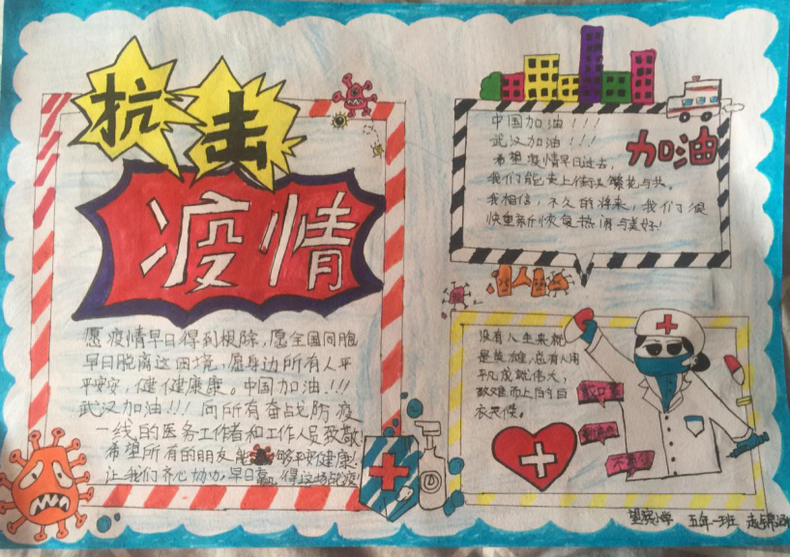 抗击
疫情
愿疫情早日得到根除,愿全国同胞
早日脱离这困境,愿身边所有人平
平安安,健健康康。中国加油!!!
武汉加油!!! 向所有奋战防疫
一线的医务工作者和工作人员致敬
希望所有的朋友能够平安健康!
让我们齐心协力,早日赢得这场战疫!
中国加油!!!
武汉加油!!!
希望疫情早日过去,
我们能走上街头繁花与共。
我相信,不久的将来,我们很
快重新恢复热闹与美好!
加油
没有人生来就
是英雄,总有人用
平凡成就伟大,
致难而上的白
衣天使。
戴口罩
勤洗手
不聚集
小学 五年一班